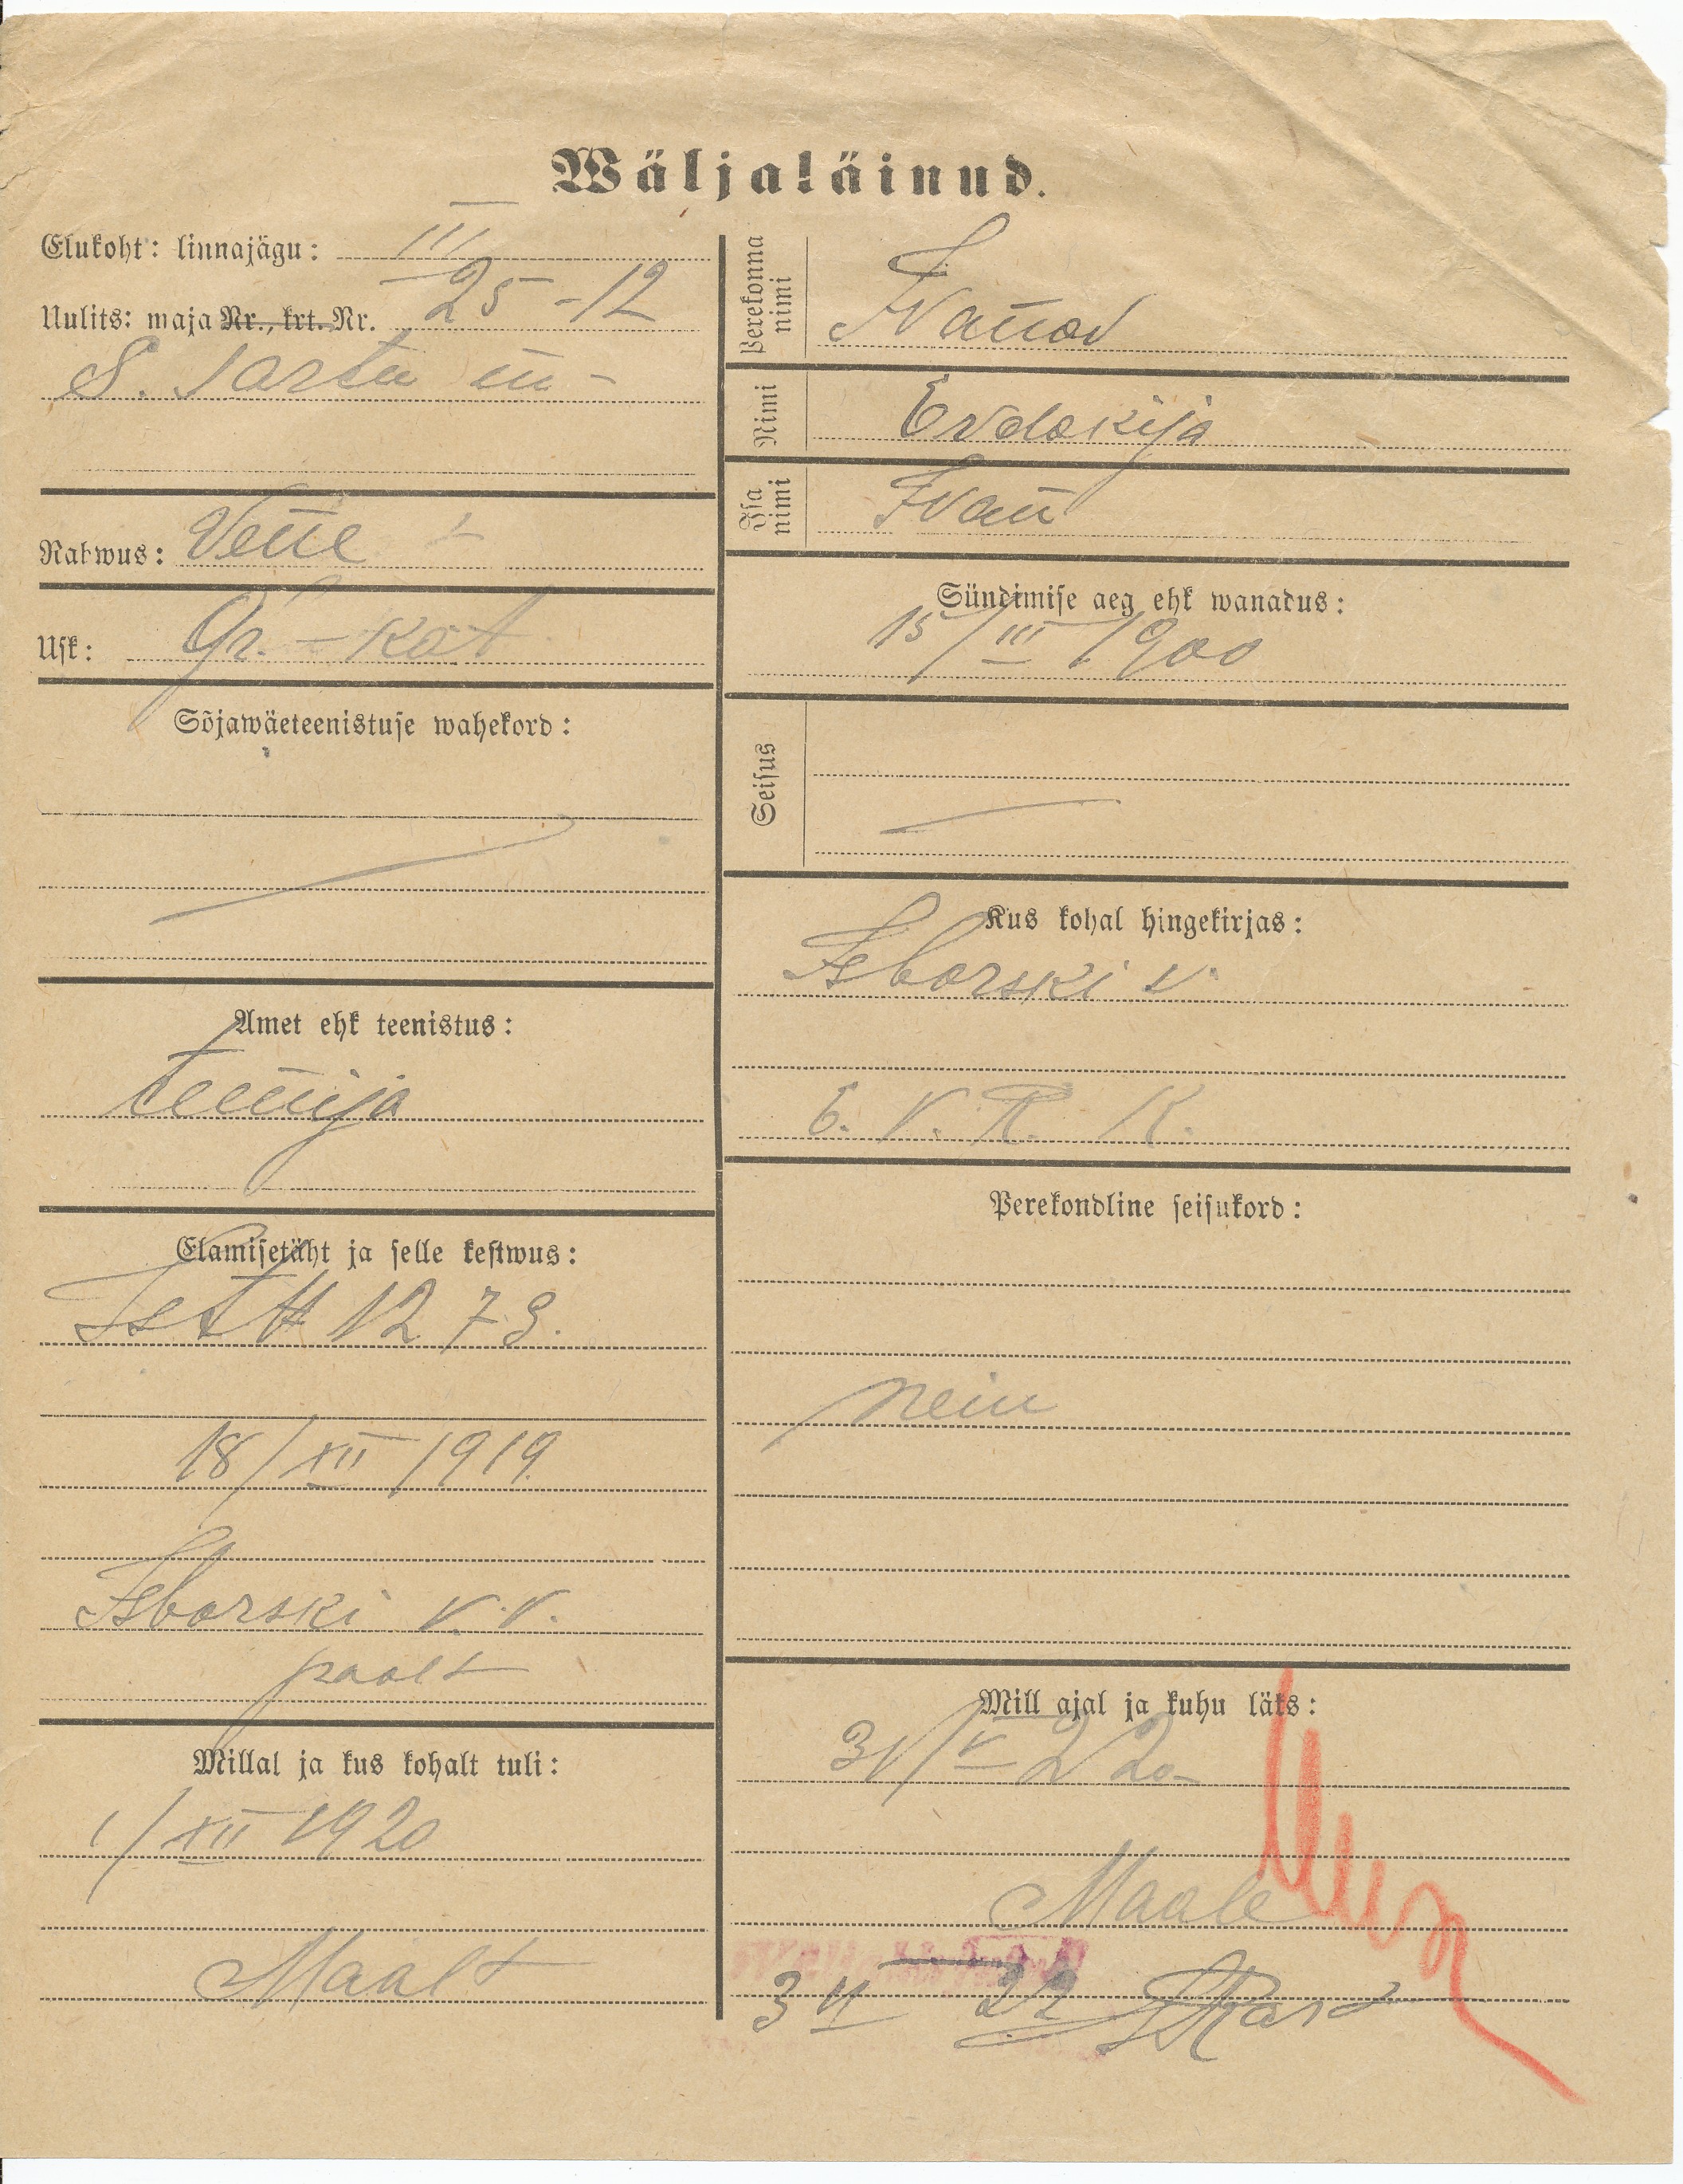 Wäljaläinud.
Elukoht: linnajägu: III
Uulits: maja Nr., krt. Nr. 25-12
S. Tartu m-
Rahwus: Vene
Usk: Gr.-kat
Sõjawäeteenistuse wahekord:
Amet ehk teenistus:
teenija
Elamisetäht ja selle kestwus:
Ist # 1273.
18/XII 1919.
Isborski v. v.
poolt
Millal ja kus kohalt tuli:
1/XII 1920
Maalt
Perekonna nimi Ivanov
Nimi Evdokija
Isa nimi Ivan
Sündimise aeg ehk wanadus:
15/III 1900
Seisus
Kus kohal hingekirjas:
Isborski v.
E. V. R. K.
Perekondline seisukord:
nein
Mill ajal ja kuhu läks:
31/V
Maale
3 VI 22